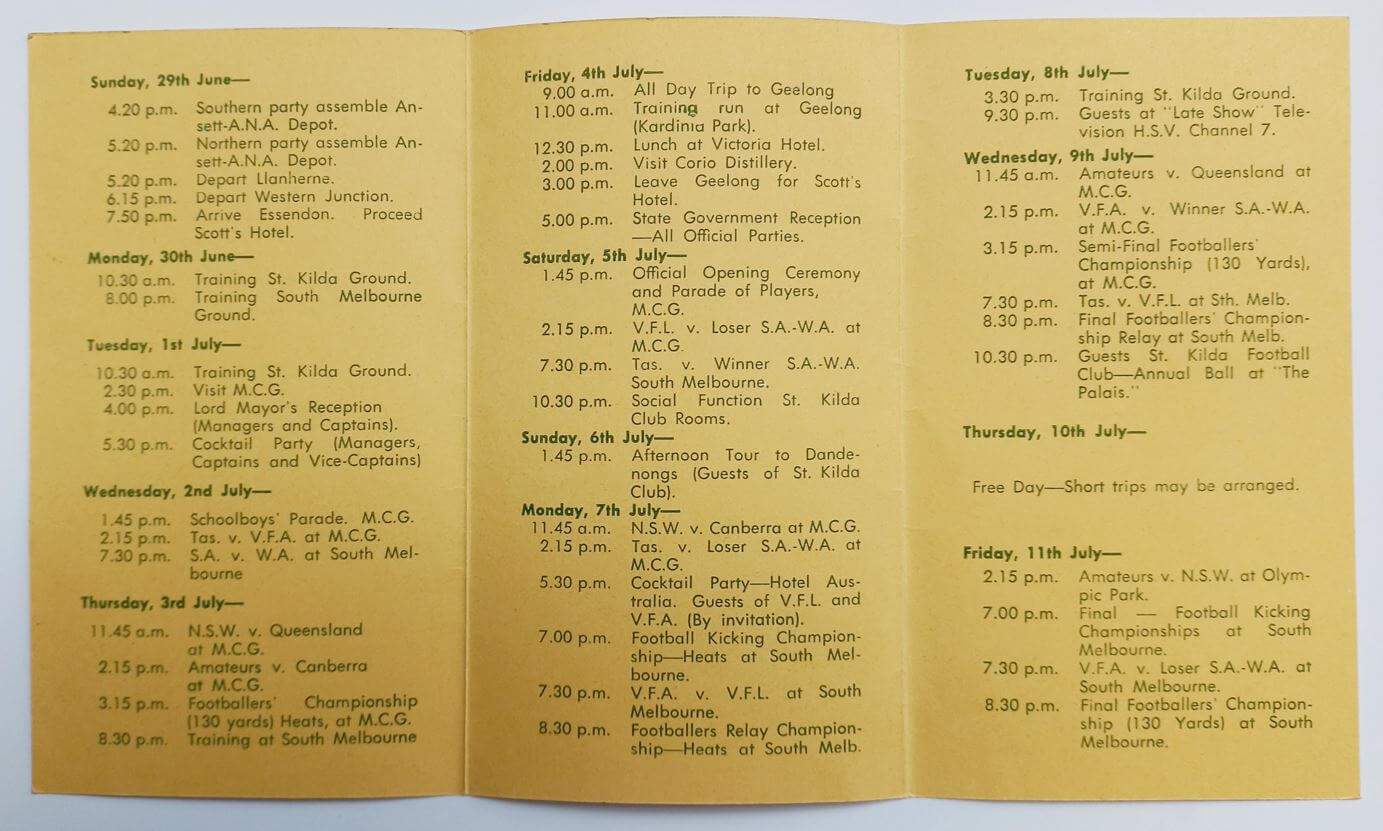 Sunday, 29th June—
4.20 p.m. Southern party assemble An-
sett-A.N.A. Depot.
5.20 p.m. Northern party assemble An-
sett-A.N.A. Depot.
5.20 p.m. Depart Llanherne.
6.15 p.m. Depart Western Junction.
7.50 p.m. Arrive Essendon. Proceed
Scott's Hotel.
Monday, 30th June—
10.30 a.m. Training St. Kilda Ground.
8.00 p.m. Training South Melbourne
Ground.
Tuesday, 1st July—
10.30 a.m. Training St. Kilda Ground.
2.30 p.m. Visit M.C.G.
4.00 p.m. Lord Mayor's Reception
(Managers and Captains).
5.30 p.m. Cocktail Party (Managers,
Captains and Vice-Captains)
Wednesday, 2nd July—
1.45 p.m. Schoolboys' Parade. M.C.G.
2.15 p.m. Tas. v. V.F.A. at M.C.G.
7.30 p.m. S.A. v. W.A. at South Mel-
bourne
Thursday, 3rd July—
11.45 a.m. N.S.W. v. Queensland
at M.C.G.
2.15 p.m. Amateurs v. Canberra
at M.C.G.
3.15 p.m. Footballers' Championship
(130 yards) Heats, at M.C.G.
8.30 p.m. Training at South Melbourne
Friday, 4th July—
9.00 a.m. All Day Trip to Geelong
11.00 a.m. Training run at Geelong
(Kardinia Park).
12.30 p.m. Lunch at Victoria Hotel.
2.00 p.m. Visit Corio Distillery.
3.00 p.m. Leave Geelong for Scott's
Hotel.
5.00 p.m. State Government Reception
—All Official Parties.
Saturday, 5th July—
1.45 p.m. Official Opening Ceremony
and Parade of Players,
M.C.G.
2.15 p.m. V.F.L. v. Loser S.A.-W.A. at
M.C.G.
7.30 p.m. Tas. v. Winner S.A.-W.A.
South Melbourne.
10.30 p.m. Social Function St. Kilda
Club Rooms.
Sunday, 6th July—
1.45 p.m. Afternoon Tour to Dande-
nongs (Guests of St. Kilda
Club).
Monday, 7th July—
11.45 a.m. N.S.W. v. Canberra at M.C.G.
2.15 p.m. Tas. v. Loser S.A.-W.A. at
M.C.G.
5.30 p.m. Cocktail Party—Hotel Aus-
tralia. Guests of V.F.L. and
V.F.A. (By invitation).
7.00 p.m. Football Kicking Champion-
ship—Heats at South Mel-
bourne.
7.30 p.m. V.F.A. v. V.F.L. at South
Melbourne.
8.30 p.m. Footballers Relay Champion-
ship—Heats at South Melb.
Tuesday, 8th July—
3.30 p.m. Training St. Kilda Ground.
9.30 p.m. Guests at "Late Show" Tele-
vision H.S.V. Channel 7.
Wednesday, 9th July—
11.45 a.m. Amateurs v. Queensland at
M.C.G.
2.15 p.m. V.F.A. v. Winner S.A.-W.A.
at M.C.G.
3.15 p.m. Semi-Final Footballers'
Championship (130 Yards),
at M.C.G.
7.30 p.m. Tas. v. V.F.L. at Sth. Melb.
8.30 p.m. Final Footballers' Champion-
ship Relay at South Melb.
10.30 p.m. Guests St. Kilda Football
Club—Annual Ball at "The
Palais."
Thursday, 10th July—
Free Day—Short trips may be arranged.
Friday, 11th July—
2.15 p.m. Amateurs v. N.S.W. at Olym-
pic Park.
7.00 p.m. Final — Football Kicking
Championships at South
Melbourne.
7.30 p.m. V.F.A. v. Loser S.A.-W.A. at
South Melbourne.
8.30 p.m. Final Footballers' Champion-
ship (130 Yards) at South
Melbourne.